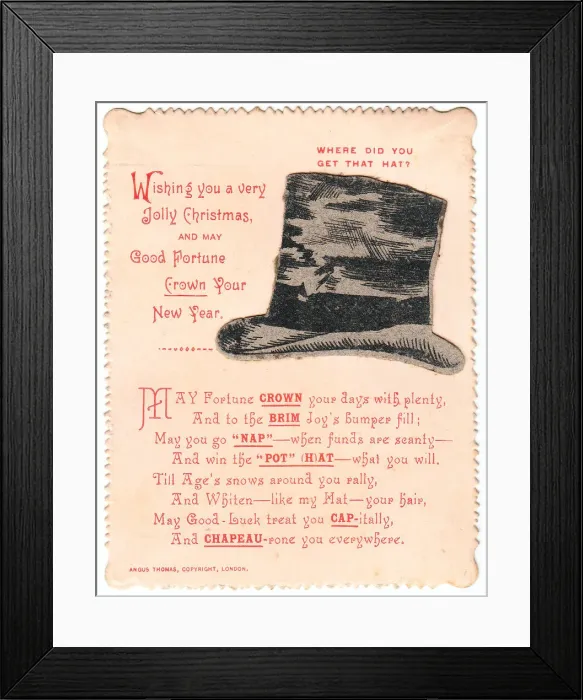 WHERE DID YOU
GET THAT HAT?
Wishing you a very
Jolly Christmas,
AND MAY
Good Fortune
Crown Your
New Year.
MAY Fortune CROWN your days with plenty,
And to the BRIM Joy's bumper fill;
May you go "NAP"—when funds are scanty—
And win the "POT" (H)AT—what you will.
Till Age's snows around you rally,
And Whiten—like my Hat—your hair,
May Good-Luck treat you CAP-itally,
And CHAPEAU-rone you everywhere.
ANGUS THOMAS, COPYRIGHT, LONDON.